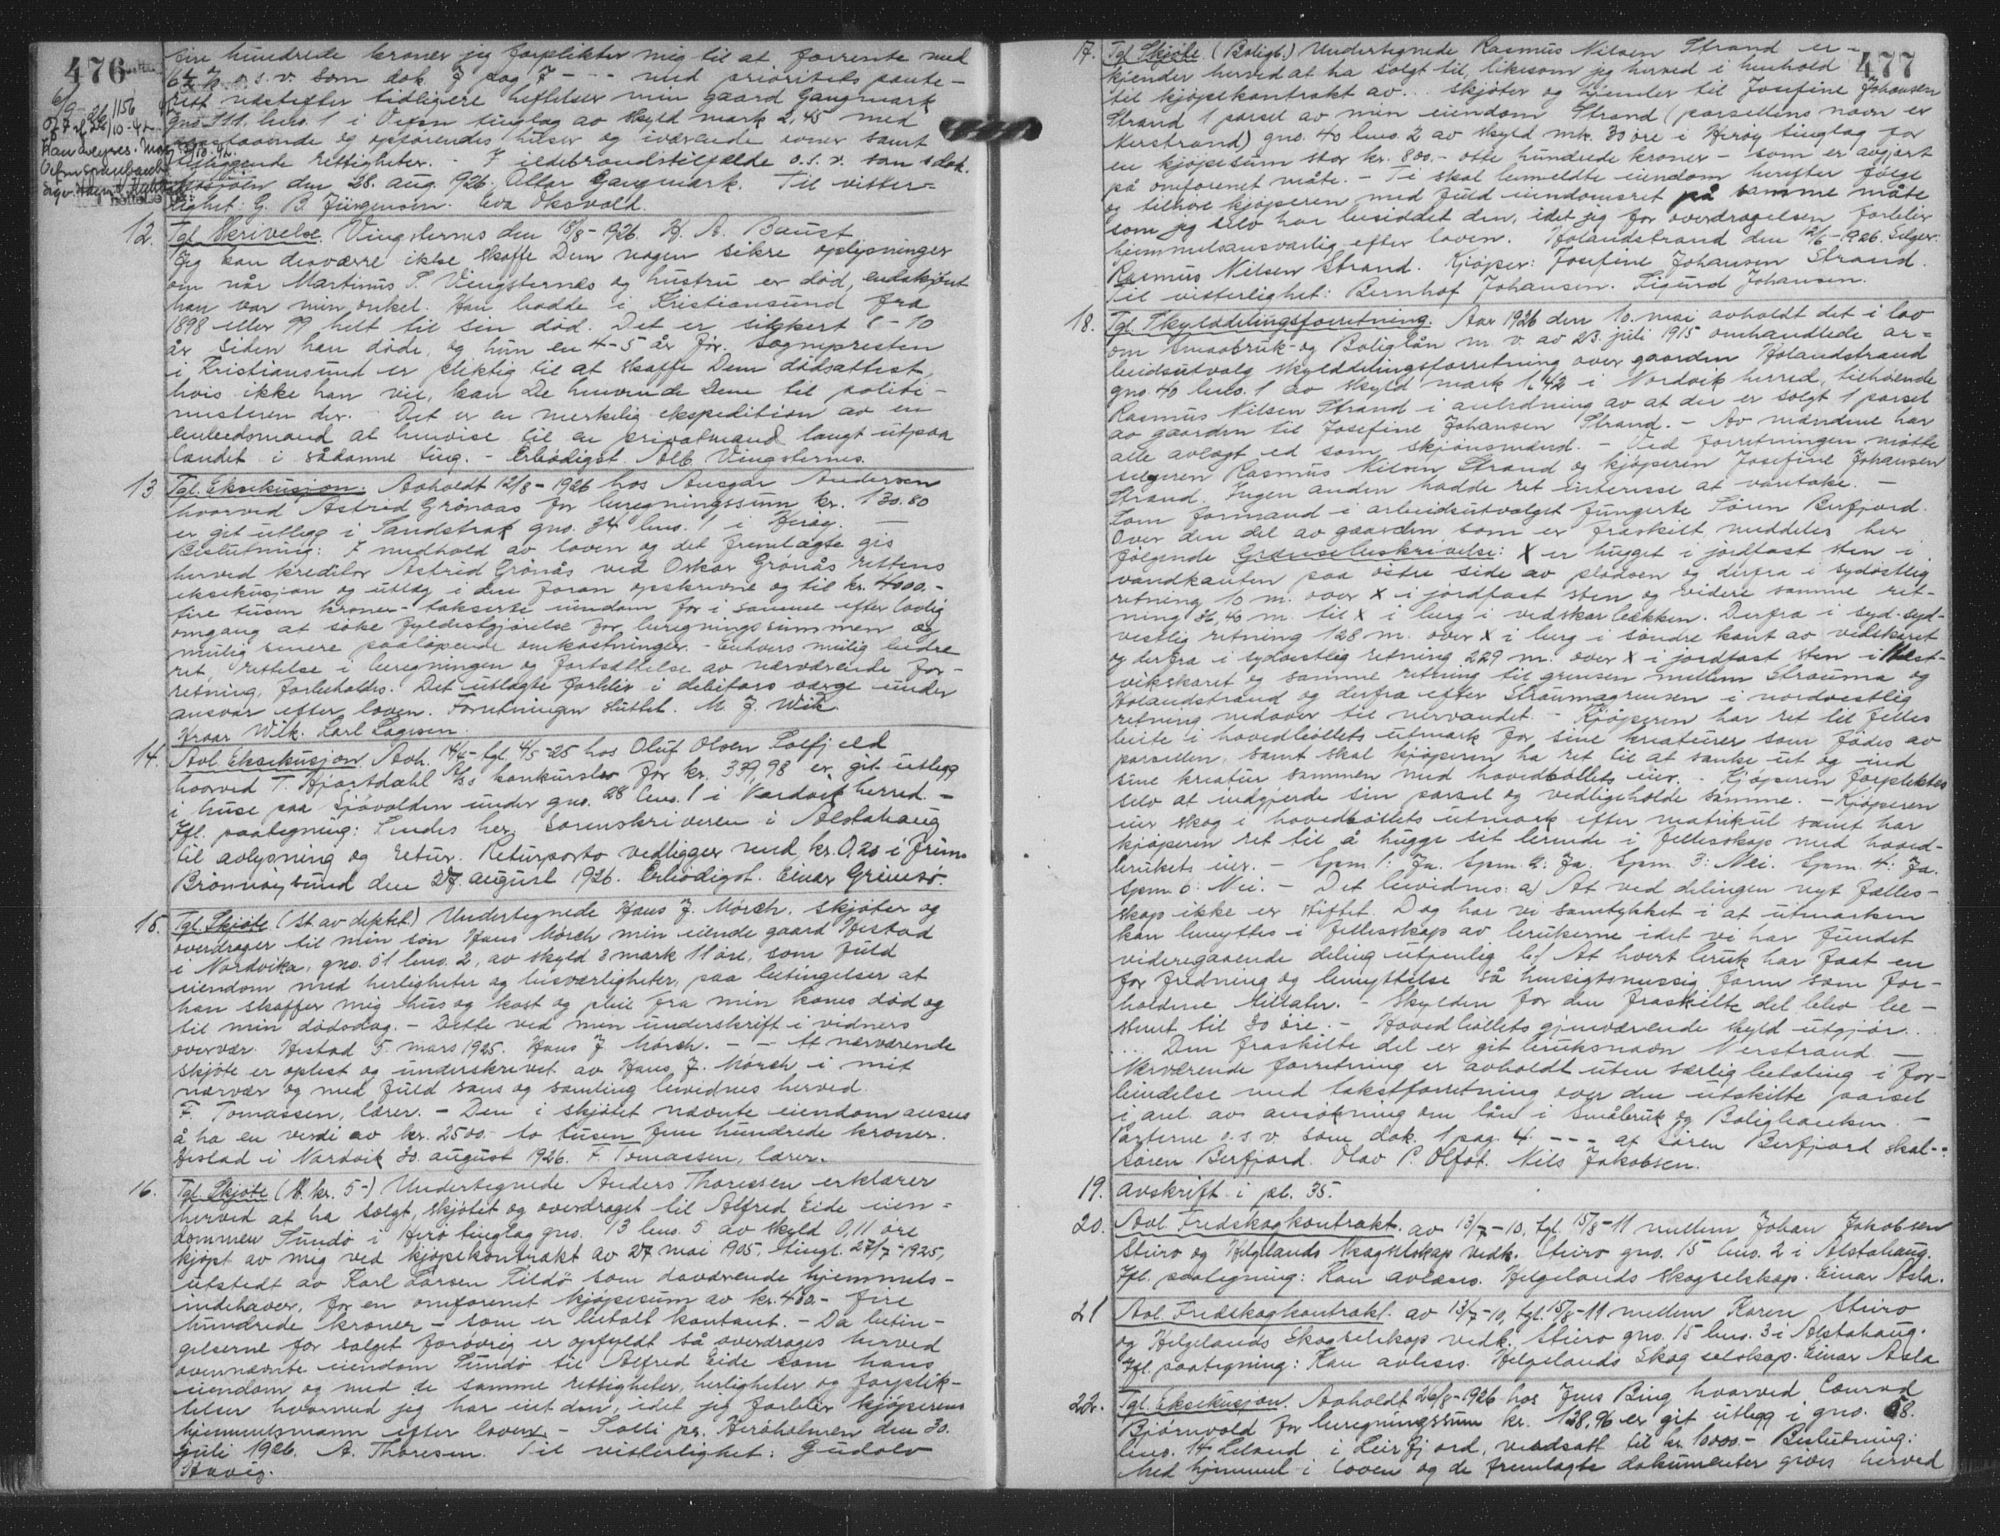 476
sire hundrede kroner jeg forplikter mig til at forrente med
6½ % o.s.v. som dok 7 pag 7 - - - med prioritets pante-
rett næstefter tidligere heftelser min gaard Gangmark
gno 111, bno. 1 i Vefsn tinglag av skyld mark 2,45 med
paastaaende og opførendes huser og iværende ovner samt
tilliggende rettigheter. - I ildebrandstilfælde o.s.v. som dok.
Mosjøen den 28. aug. 926. Ottar Gangmark. Til vitter=
lighet: G. B. Jürgensen. Eva Oksvold.
12. Tgl. Skrivelse. Vingsternes den 18/8-1926. H. A. Baust
Jeg kan desværre ikke skaffe Dem nogen sikre oplysninger
om når Martinus P. Vingsternes og hustru er død, endskjønt
han var min onkel. Han bodde i Kristiansund fra
1898 eller 99 helt til sin død. Det er sikkert 8-10
år siden han døde, og hun en 4-5 år før. Sognepresten
i Kristiansund er pliktig til at skaffe Dem dødsattest,
hvis ikke han vil, kan De henvende Dem til politi-
mesteren der. Det er en merkelig ekspedition av en
embedsmand at henvise til en privatmand langt utpaa
landet i sådanne ting. - Erbødigst Alb. Vingsternes.
13. Tgl. Eksekusjon. Avholdt 12/8-1926 hos Ansgar Andersen
hvorved Astrid Grønaas for beregningssum kr. 130.80
er git utlegg i Sandstrak gno. 34 bno. 1 i Herøy. -
Beslutning: I medhold av loven og det fremlagte gis
herved kreditor Astrid Grönås ved Oskar Grönås rettens
eksekusjon og utlæg i den foran opskrevne og til kr. 4000.-
fire tusen kroner - takserte eiendom for i samme efter lovlig
omgang at söke fyldestgjørelse for beregningssummen og
mulig senere paaløpende omkostninger. - Enhvers mulig bedre
ret, rettelse i beregningen og fortsættelse av nærværende for-
retning, forbeholdes. Det utlagte forblir i debitors værge under
ansvar efter loven. Forretningen sluttet. M. J. Wik
Ivaar Wik. Karl Lagesen.
14. Avl. Eksekusjon. Avh. 14/4- tgl. 4/5-25 hos Oluf Olsen Solfjeld
hvorved T. Hjortdahl A/s konkursbo for kr. 339,98 er git utlegg
i huse paa Sjøvolden under gno. 28 bno. 1 i Nordvik herred. -
Ifl. paategning: Sendes herr Sorenskriveren i Alstahaug
til avlysning og retur. Returporto vedligger med kr. 0,20 i frim.
Brønnøysund den 27. august 1926. Erbødigst. Einar Greiess.
15. Tgl. Skjøte (St av dektet) Undertegnede Hans J. Mörch. skjøter og
overdrager til min søn Hans Mörch min eiende gaard Hestad
i Nordvika, gno. 51 bno. 2, av skyld 3 mark 11 öre, som fuld
eiendom med herligheter og besværligheter, paa betingelser at
han skaffer mig hus og kost og pleie fra min kones død og
til min dødsdag. - Dette ved min underskrift i vidners
overvær. Hestad 5. mars 1925. Hans J Mörch. - - At nærværende
skjøte er oplest og underskrevet av Hans J. Mörch i mit
nærvær og med fuld sans og samling bevidnes herved.
F. Tomassen, lærer. - Den i skjøtet nævnte eiendom anses
å ha en verdi av kr. 2500.- to tusen fem hundrede kroner.
Hestad i Nordvik 30. august 1926. F. Tomassen, lærer.
16. Tgl. Skjøte (St. kr. 5-) Undertegnede Anders Thoressen erklærer
herved at ha solgt, skjøtet og overdraget til Alfred Eide eien=
dommen Sundö i Herö tinglag gno. 13 bno. 5 av skyld 0,11 öre
kjøpt av mig ved kjøpekontrakt av 27 mai 1905. tingl. 27/7-1925,
utstedt av Karl Larsen Tildö som daværende hjemmels-
indehaver, for en omforenet kjøpesum av kr. 400.- fire
hundrede kroner - som er betalt kontant. - Da betin-
gelserne for salget forøvrig er opfyldt så overdrages herved
ovennævnte eiendom Sundö til Alfred Eide som hans
eiendom og med de samme rettigheter, herligheter og forplik-
telser hvormed jeg har eiet den, idet jeg forblir kjøperens
hjemmelsmann efter loven. - Solli pr. Herøholmen den 30.
juli 1926. A. Thoresen. Til vitterlighet: Gudolv
Havig.
477
17. Tgl. Skjøte (Boligb.) Undertegnede Rasmus Nilsen Strand er-
kjender herved at ha solgt til, likesom jeg herved i henhold
til kjøpekontrakt av... skjøter og hjemler til Josefine Johansen
Strand 1 parsel av min eiendom Strand (parsellens navn er
Nerstrand) gno. 40 bno. 2 av skyld mk. 30 öre i Herøy tinglag for
en kjøpesum stor kr. 800.- otte hundrede kroner - som er avgjort
på omforenet måte. - Ti skal bemeldte eiendom herefter følge
og tilhøre kjøperen med fuld eiendomsret på samme måte
som jeg selv har besiddet den, idet jeg for overdragelsen forblir
hjemmelsansvarlig efter loven. Holandstrand den 12/6-1926. Selger:
Rasmus Nilsen Strand. Kjøper: Josefine Johansen Strand.
Til vitterlighet: Bernhof Johansen. Sigurd Johansen.
18. Tgl. Skylddelingsforretning. Aar 1926 den 10. mai avholdt det i lov
om Småbruk- og Boliglån m. v. av 23. juli 1915 omhandlede ar=
beidsutvalg skylddelingsforretning over gaarden Holandstrand
gno. 40 bno. 1 av skyld mark 1,42 i Nordvik herred, tilhørende
Rasmus Nilsen Strand i anledning av at der er solgt 1 parsel
av gaarden til Josefine Johansen Strand. - Av mændene har
alle avlagt ed som skjønsmænd. - Ved forretningen møtte
selgeren Rasmus Nilsen Strand og kjøperen Josefine Johansen
Strand. Ingen anden hadde ret interesse at varetake. -
Som formand i arbeidsutvalget fungerte Sören Berfjord.
Over den del av gaarden som er fraskilt meddeles her
følgende Grænsebeskrivelse: X er hugget i jordfast sten i
vandkanten paa östre side av stødoen og derfra i sydøstlig
retning 10 m. over X i jordfast sten og videre samme ret-
ning 36,40 m. til X i berg i vedskarbækken. Derfra i syd-syd-
vestlig retning 128 m. over X i berg i søndre kant av vedskaret
og derfra i sydvestlig retning 229 m. over X i jordfast sten i Nest-
vikskaret og samme retning til grensen mellem Strauma og
Holandstrand og derfra efter Straumagrensen i nordvestlig
retning nedover til nervandet. - Kjøperen har ret til felles
beite i hovedbøllets utmark for sine kreaturer som fødes av
parsellen, samt skal kjøperen ha ret til at sanke ut og ind
sine kreatur sammen med hovedbøllets eier. - Kjøperen forpliktes
selv at indgjerde sin parsel og vedligeholde samme. - Kjøperen
eier skog i hovedbøllets utmark efter matrikul samt har
kjøperen ret til å hugge sit brende i fellesskap med hoved-
brukets eier. - Spm. 1: Ja. Spm. 2: Ja. Spm. 3: Nei. Spm. 4: Ja.
Spm. 5: Nei. - Det bevidnes: a) At ved delingen nyt fælles-
skap ikke er stiftet. Dog har vi samtykket i at utmarken
kan benyttes i fellesskap av brukerne idet vi har fundet
videregaaende deling utjenlig b) At hvert bruk har faat en
for fredning og benyttelse så hensigtsmessig form som for-
holdene tillater. - Skylden for den fraskilte del blev be-
stemt til 30 öre. - Hovedbøllets gjenværende skyld utgjør..
... Den fraskilte del er git bruksnavn Nerstrand -
Nærværende forretning er avholdt uten særlig betaling i for-
bindelse med takstforretning over den utskilte parsel
i anl. av ansøkning om lån i Småbruk og Boligbanken. -
Parterne o.s.v. som dok. 1 pag. 4. - - - at Sören Berfjord skal - -
Sören Berfjord. Olav P. Olfot. Nils Jakobsen.
19. Avskrift i pl. 35.
20. Avl. Fredskogkontrakt. av 13/7-10, tgl. 15/8-11 mellem Johan Jakobsen
Sturo og Helgelands Skogselskap vedk. Sturo gno. 15 bno. 2 i Alstahaug.
Ifl. paategning: Kan avlæses. Helgelands skogselskap. Einar Asla.
21. Avl. Fredskogkontrakt. av 13/7-10, tgl. 15/8-11 mellem Karen Sturo
og Helgelands Skogselskap vedk. Sturo gno. 15 bno. 3 i Alstahaug.
Ifl. paategning: Kan avleses. Helgelands Skogselskap. Einar Asla
22. Tgl. Eksekusjon. Avholdt 26/8-1926 hos Jens Bing hvorved Conrad
Bjørnvold for beregningssum kr. 138.96 er git utlegg i gno. 58.
bno. 14 Leland i Leirfjord, verdsatt til kr. 10000.- Beslutning:
Med hjemmel i loven og de fremlagte dokumenter gives herved